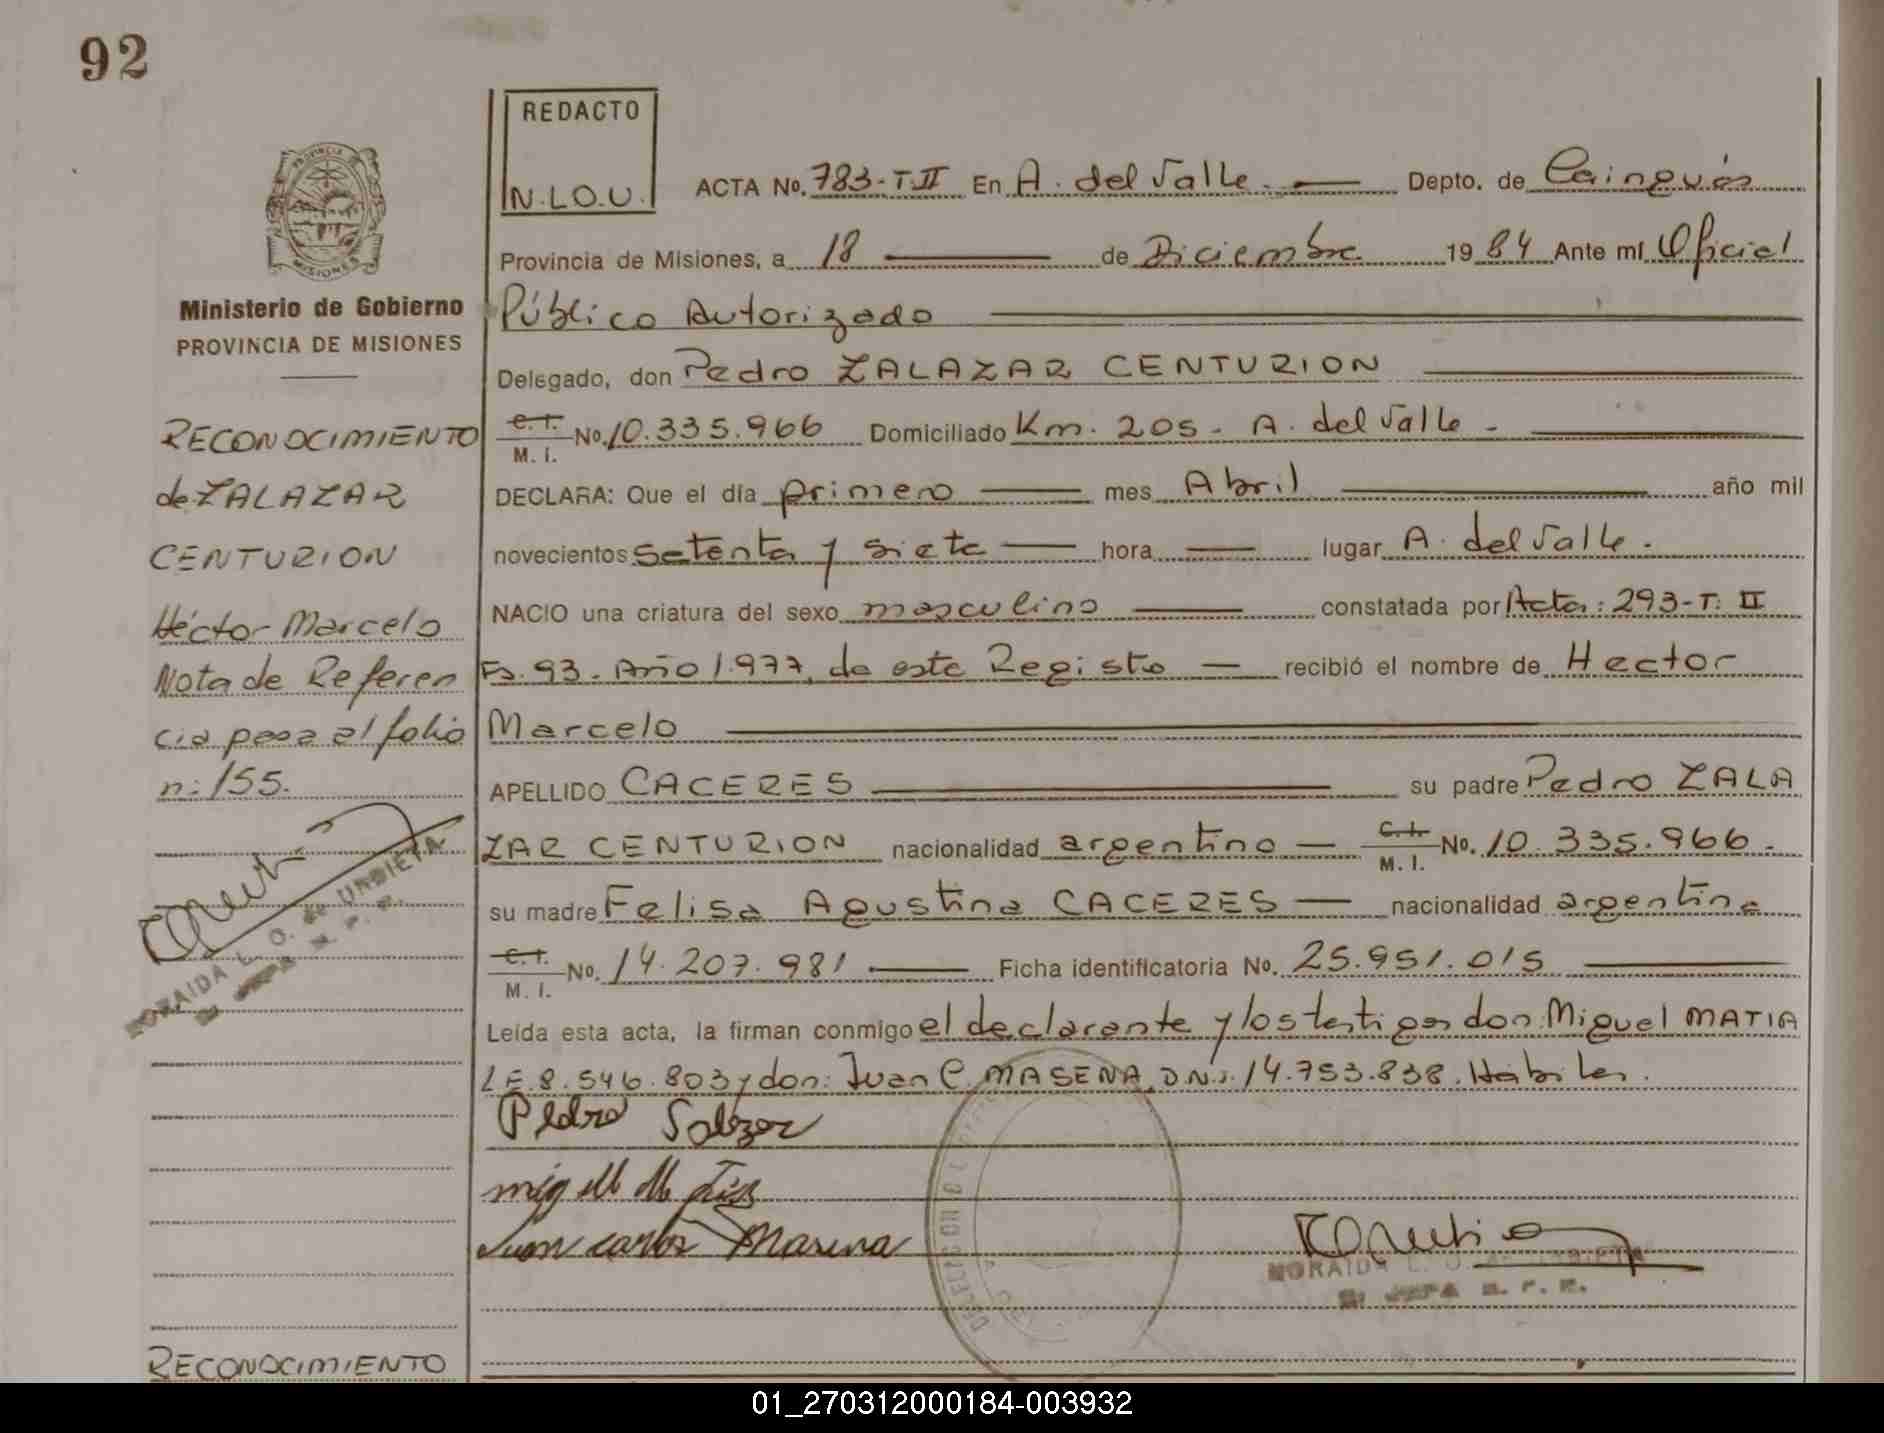 92
REDACTO
N.L.O.U.
ACTA No. 783-T.II En A. del Valle. — Depto. de Cainguás
Provincia de Misiones, a 18 — de Diciembre 1984 Ante mí Oficial
Público Autorizado
Delegado, don Pedro ZALAZAR CENTURION
C.I. M.I. No. 10.335.966 Domiciliado Km. 205 - A. del Valle -
DECLARA: Que el día primero — mes Abril — año mil
novecientos setenta y siete — hora — lugar A. del Valle.
NACIO una criatura del sexo masculino — constatada por Acta: 293-T: II
Fs. 93. Año 1.977, de este Registo — recibió el nombre de Hector
Marcelo
APELLIDO CACERES — su padre Pedro ZALA
ZAR CENTURION nacionalidad argentino — C.I. M.I. No. 10.335.966.
su madre Felisa Agustina CACERES — nacionalidad argentina
C.I. M.I. No. 14.207.981 — Ficha identificatoria No. 25.951.015
Leída esta acta, la firman conmigo el declarante y los testigos don: Miguel MATIA
LE.8.546.803 y don: Juan C. MASENA, D.N.I. 14.753.838. Hábiles.
Pedro Salazar
Juan carlos Masena
NORAIDA L. O. de URBIETA
JEFA R. P. P.
PROVINCIA
MISIONES
Ministerio de Gobierno
PROVINCIA DE MISIONES
RECONOCIMIENTO
de ZALAZAR
CENTURION
Héctor Marcelo
Nota de Referen
cia pasa al folio
n: 155.
NORAIDA L. O. de URBIETA
RECONOCIMIENTO
01_270312000184-003932